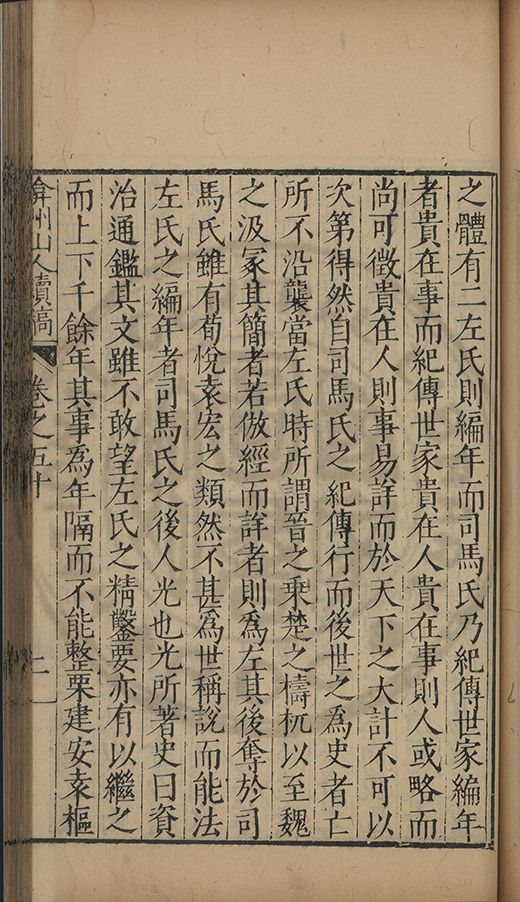 之體有二左氏則編年而司馬氏乃紀傳世家編年
者貴在事而紀傳世家貴在人貴在事則人或略而
尚可徵貴在人則事易詳而於天下之大計不可以
次第得然自司馬氏之紀傳行而後世之為史者亡
所不沿襲當左氏時所謂晉之乘楚之檮杌以至魏
之汲冢其簡者若倣經而詳者則為左其後奪於司
馬氏雖有荀悅袁宏之類然不甚為世稱說而能法
左氏之編年者司馬氏之後人光也光所著史曰資
治通鑑其文雖不敢望左氏之精鑿要亦有以繼之
而上下千餘年其事為年隔而不能整栗建安袁樞
弇州山人續稿 卷之五十 二